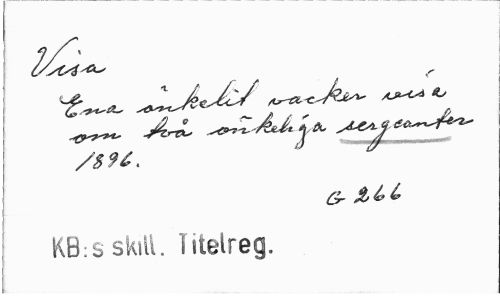 Visa
Ena önkelit vacker visa
om två önkeliga sergeanter
1896.
G 266
KB:s skill. Titelreg.